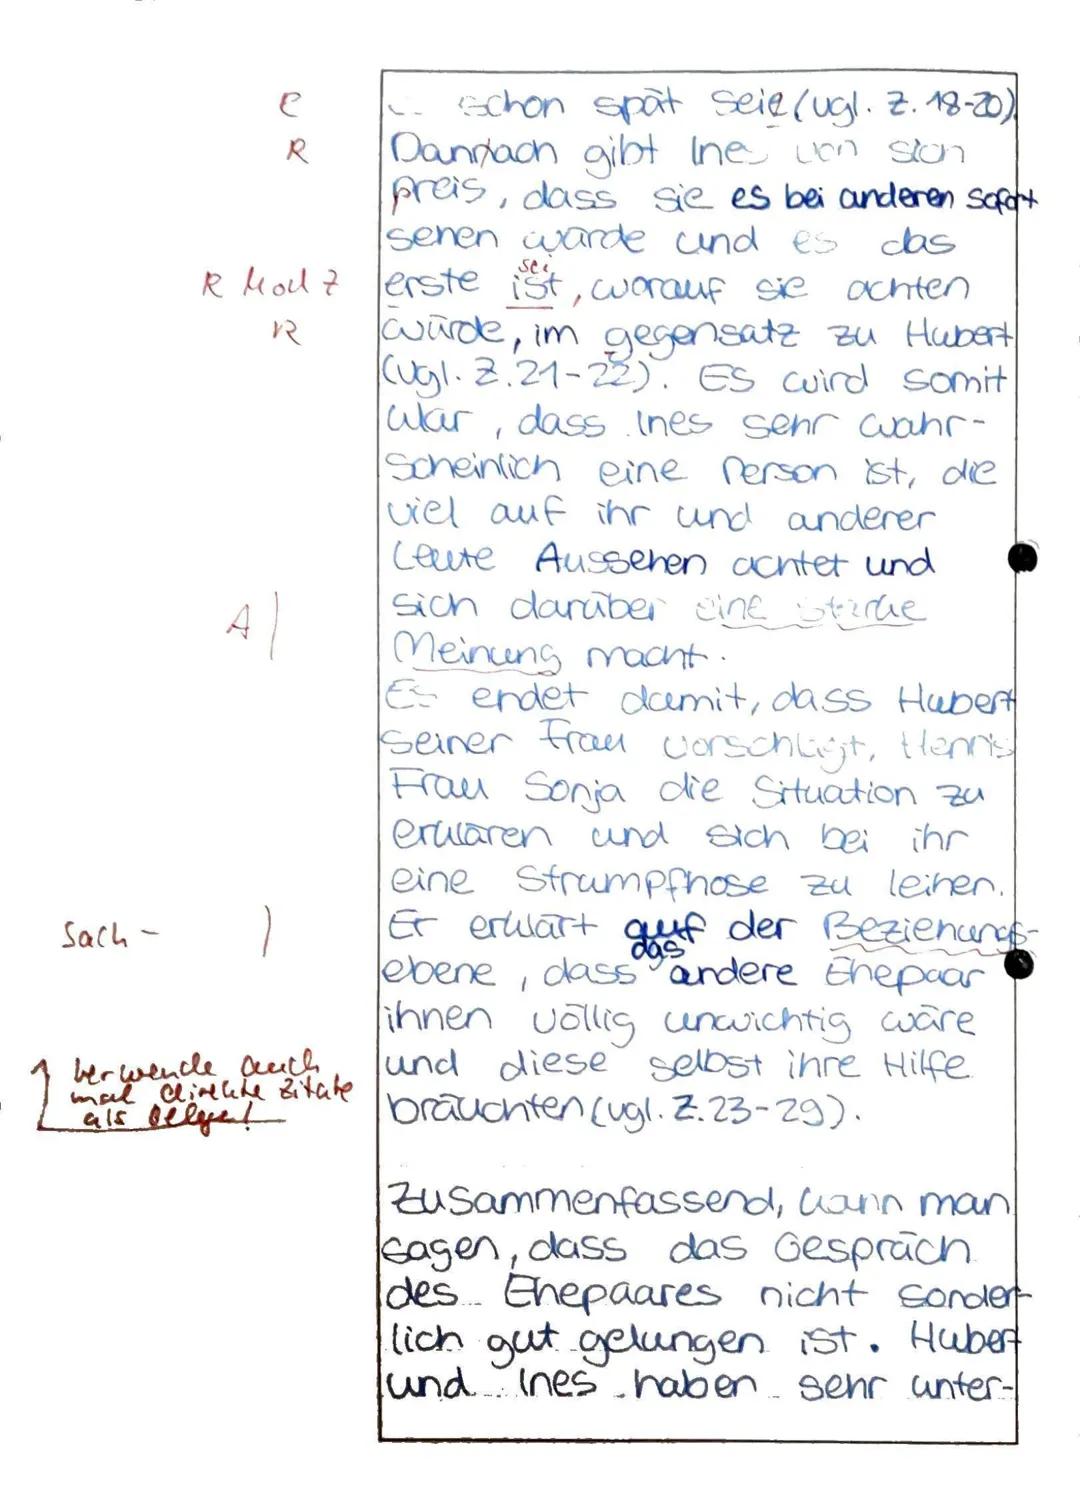 e schon spät seie (vgl. Z. 18-20)
R Dannach gibt Ines von sich
preis, dass sie es bei anderen sofort
sehen würde und es das
sei
R Mod Z erste ist, worauf sie achten
R würde, im gegensatz zu Hubert
(vgl. Z. 21-22). Es wird somit
klar, dass Ines sehr wahr-
scheinlich eine Person ist, die
viel auf ihr und anderer
Leute Aussehen achtet und
A sich darüber eine starke
Meinung macht.
Es endet damit, dass Hubert
seiner Frau vorschlägt, Hennis
Frau Sonja die Situation zu
erklären und sich bei ihr
eine Strumpfhose zu leihen.
Sach- Er erklärt auf der Beziehungs-
das
ebene, dass andere Ehepaar
ihnen völlig unwichtig wäre
verwende auch und diese selbst ihre Hilfe
mal direkte Zitate bräuchten (vgl. Z. 23-29).
als Belege!
Zusammenfassend, kann man
sagen, dass das Gespräch
des Ehepaares nicht sonder-
lich gut gelungen ist. Hubert
und Ines haben sehr unter-